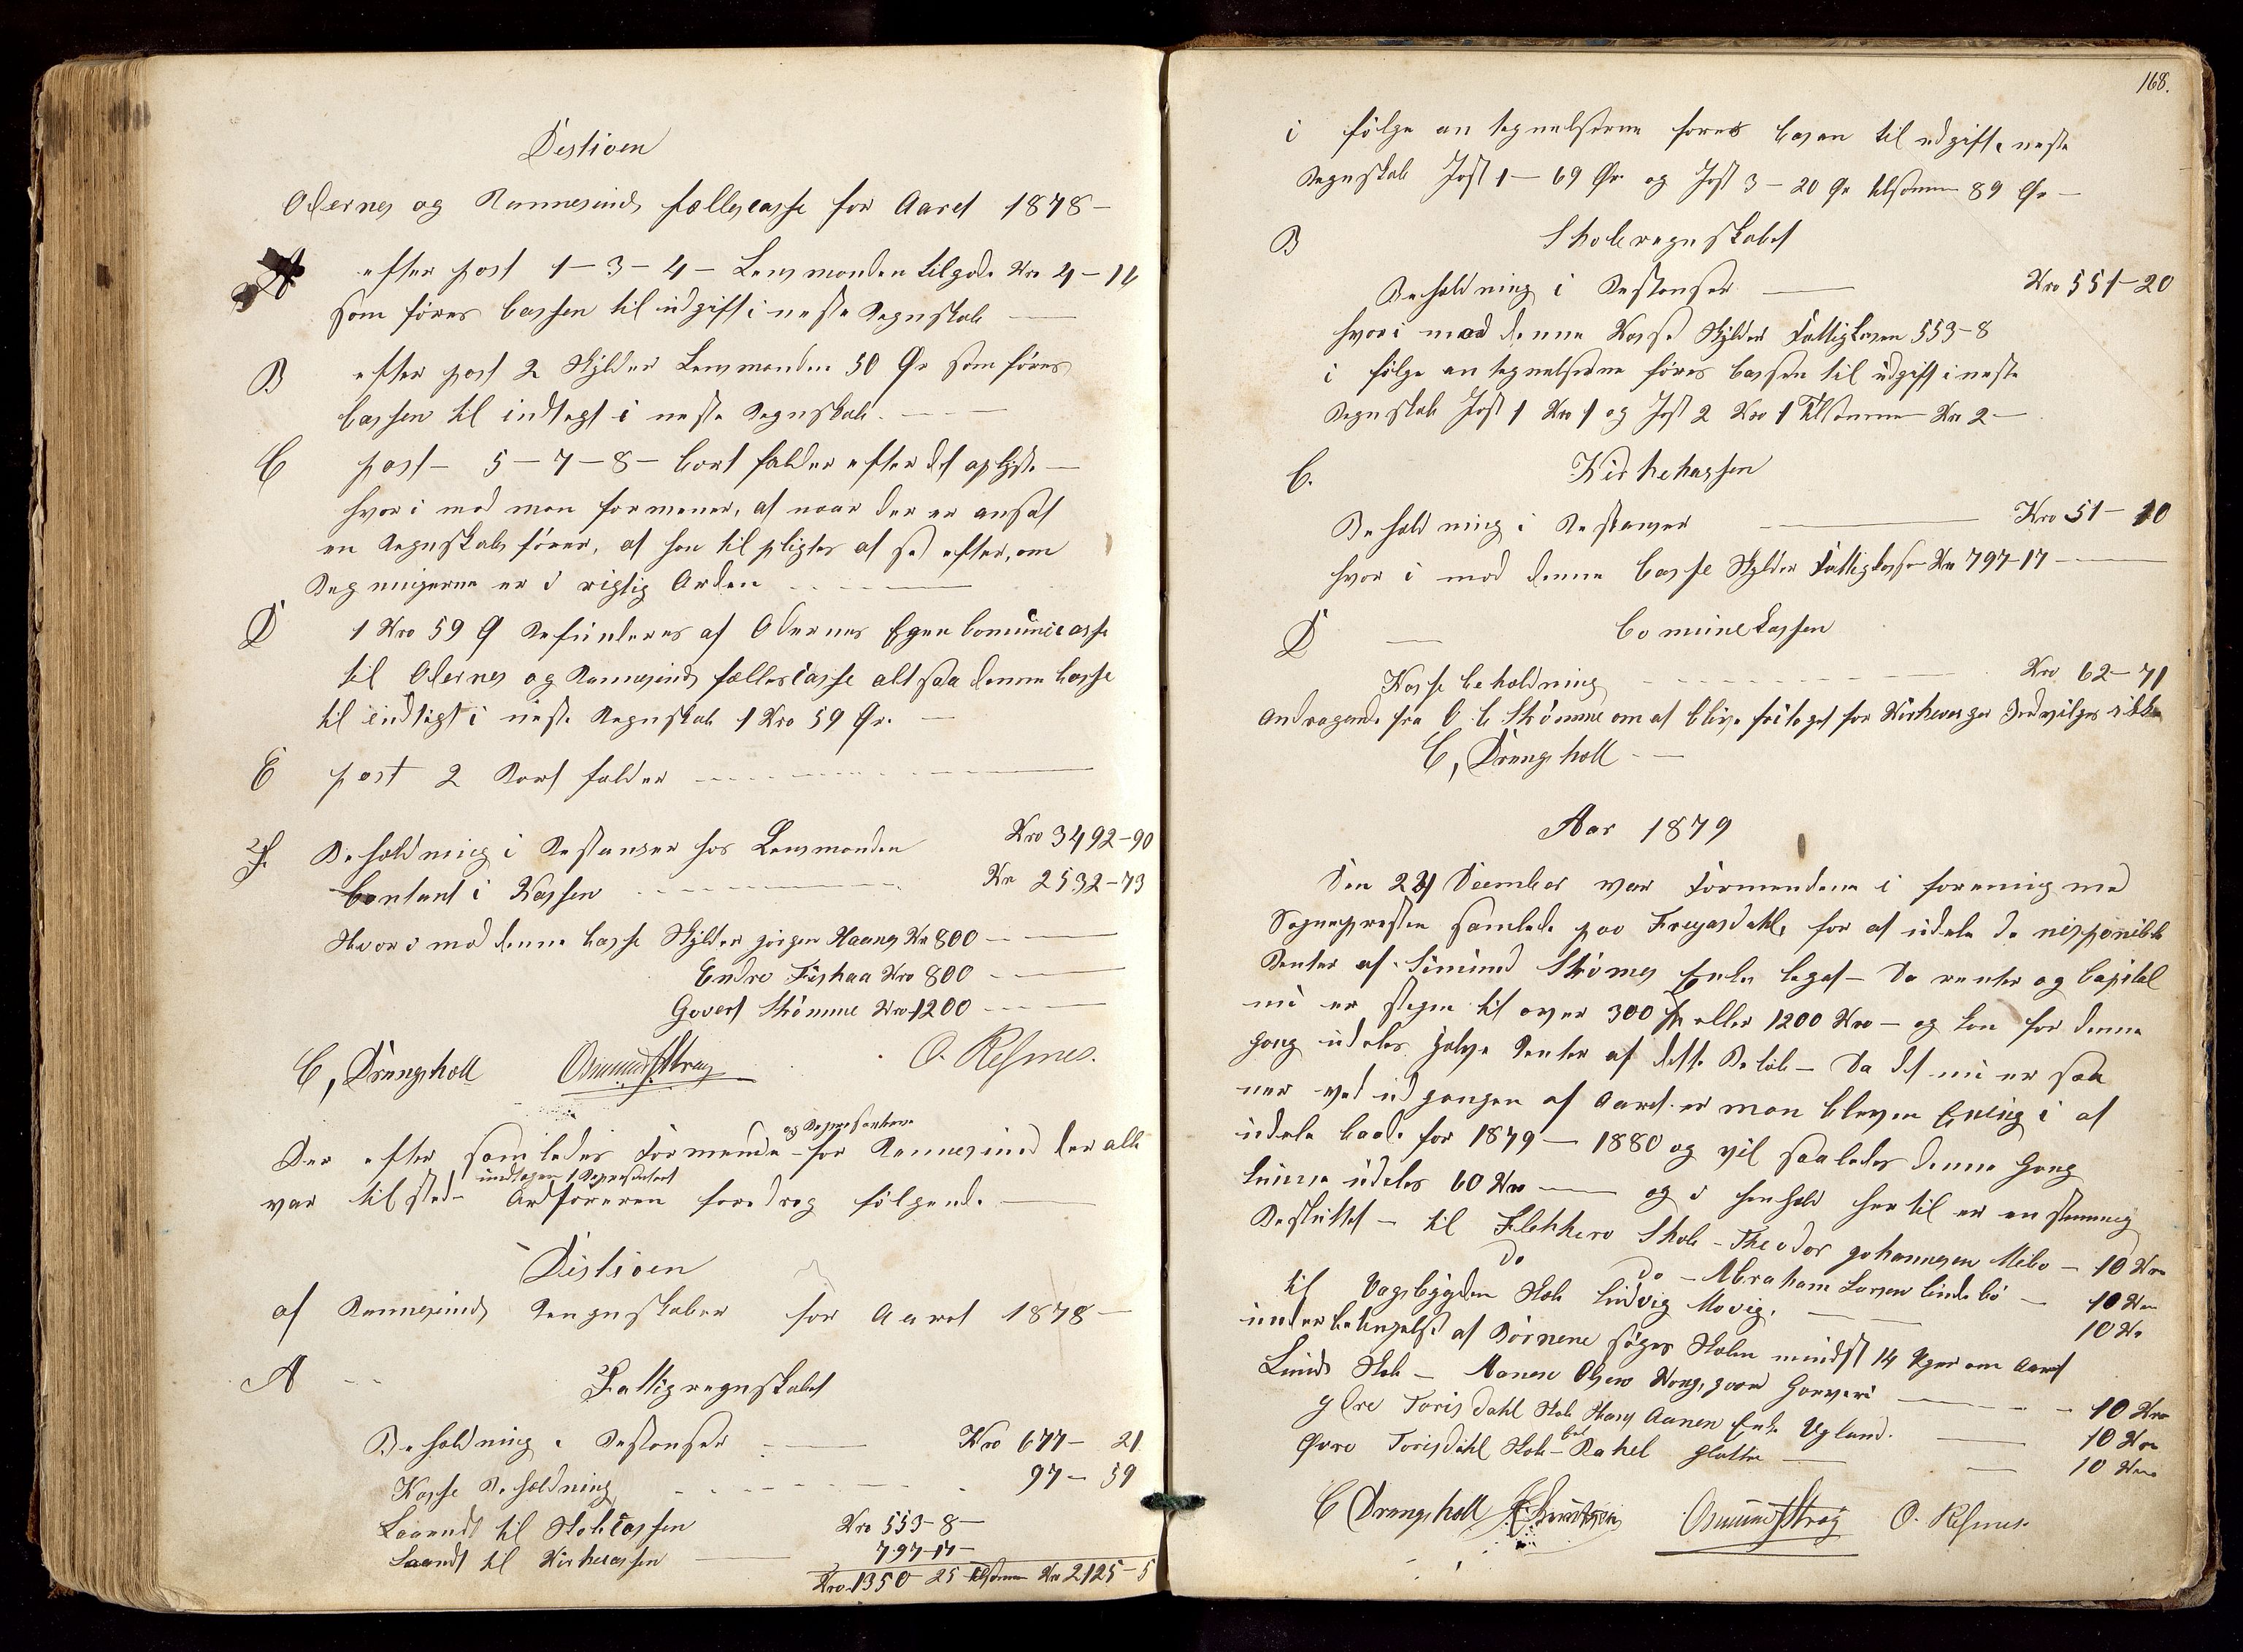 Desision
Odernes og Rannesunds fællescasse for Aaret 1878 —
A efter post 1 – 3 – 4 – Lensmanden tilgode Kro 4 – 14
som föres Cassen til udgift i neste Regnskab —
B efter post 2 Skylder Lensmanden 50 Ør som föres
Cassen til indtegt i neste Regnskab. — —
C post – 5 – 7 – 8 – bort falder efter det oplyste —
hvor i mod man formener, at naar der er ansat
en Regnskabsförer, at han til pligtes at se efter, om
Regningerne er i rigtig Orden — —
D 1 Kro 59 Ø Refunderes af Odernes Egen Comunecasse
til Odernes og Rannesunds fællescasse altsaa denne Casse
til indtegt i neste Regnskab 1 Kro 59 Ør. —
E post 2 Bort falder —
F. Beholdning i Restanser hos Lensmanden Kro 3492–90
Contant i Kassen Kr 2532–73
Hvor i mod denne Casse Skylder Jörgen Haanes Kr 800 —
Endre Fiskaa Kro 800 —
Govert Strömme Kro 1200 —
C, Drangsholt Osmund Strag O. Refsnes.
og Representanterne
Der efter samledes Formende – for Rannesund der alle
undtagen 1 Representant
var til sted – Ordföreren foredrog fölgende —
Desision
af Rannesunds Rengnskaber for Aaret 1878 —
A Fattigregnskabet
Beholdning i Restanser — Kro 677 – 21
Kasse Beholdning 97 – 59
Laandt til Skolecassen Kro 553–8 —
Laandt til Kirkecassen — 797–17 —
Kro 1350 – 25 tilsammen Kr 2125–5
168.
i fölge an tegnelserne föres Casen til udgift i neste
Regnskab Post 1 — 69 Ør og Post 3 – 20 Ør tilsammen 89 Ør —
B Skoleregnskabet
Beholdning i Restanser — Kro 551–20
hvor i mod denne Kasse Skylder Fattigkasen 553–8
i fölge an tegnelserne föres Cassen til udgift i neste
Regnskab Post 1 Kro 1 og Post 2 Kro 1 tilsammen Kr 2 —
C. Kirkekassen
Beholdning i Restanser — Kro 51 – 10
hvor i mod denne Casse Skylder Fattigkasse Kr 797–17 —
D — Comunekassen
Kasse beholdning Kro 62 – 71
Andragende fra O. C Strömme om at blive fritaget for Kirkeverger Indvilges ikke
C, Drangsholt —
Aar 1879
Den 22 Desember var Formendene i forening med
Sognepresten samlede paa Freyasdahl, for at udele de disponible
Renter af Simund Strömes Enkes legat – Da renter og Capital
nu er stegen til over 300 Sp eller 1200 Kro – og kan for denne
gang udeles halve Renter af dette Belöb – Da det nu er saa
ner ved udgangen af Aaret er man bleven Enig i at
udele baade for 1879 – 1880 og vil saaledes denne Gang
kunne udeles 60 Kro — og i henhold her til er enstemmig
Besluttet – til Flekkerö Skole – Theodor Johannesen Mebö – 10 Kro
Do Do – Abraham Larsen Lindebö – 10 Kro
til Vagsbygden Skole Ludvig Movig. — 10 Kr
under betingelse af Börnene söger Skolen mindst 14 Uger om Aaret
Lunds Skole – Aanen Olsen Kongsgaard Garveri — 10 Kro
ydre Torisdahl Skole Hans Aanen Enke Ugland. — 10 Kro
Øvre Torisdahl Skole – Rahel Slotte — 10 Kro
C Drangsholt Osmund Strag O. Refsnes.